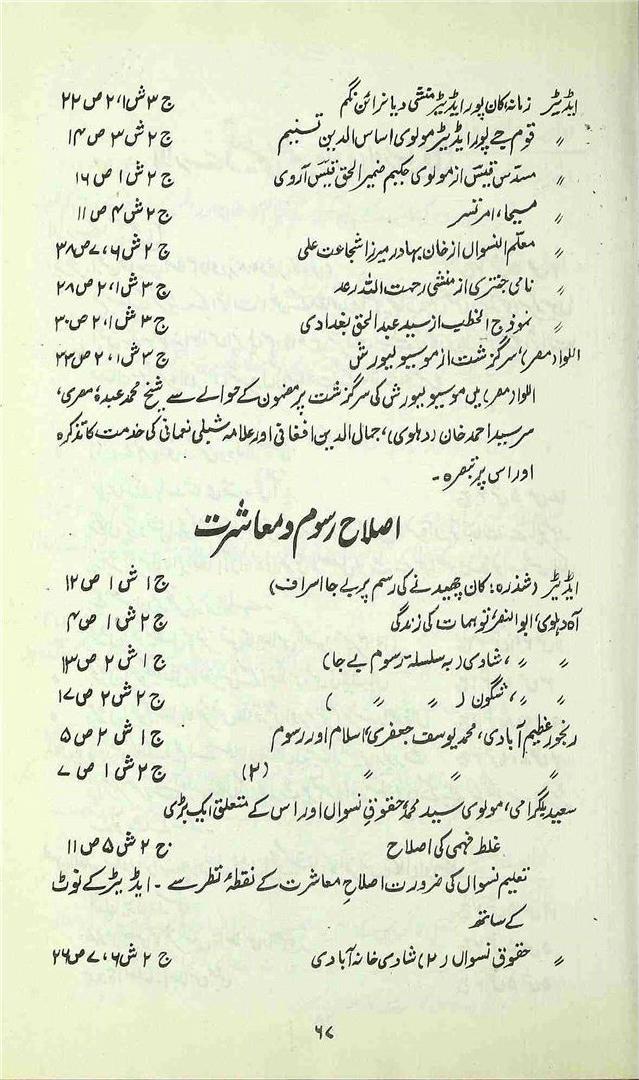 ایڈیٹر زمانہ، کان پور ایڈیٹر منشی دیا نرائن نگم ج ۳ ش ۱، ۲ ص ۲۲
〃 قوم جے پور ایڈیٹر مولوی اساس الدین تسنیم ج ۲ ش ۳ ص ۱۴
〃 مسدس قیس از مولوی حکیم ضمیر الحق قیس آروی ج ۲ ش ۱ ص ۱۶
〃 مسیحا، امرتسر ج ۲ ش ۴ ص ۱۱
〃 معلم النسواں از خان بہادر میرزا شجاعت علی ج ۲ ش ۶، ۷ ص ۳۸
〃 نامی جنتری از منشی رحمت اللہ رعد ج ۳ ش ۱، ۲ ص ۲۸
〃 نموذج الخطب از سید عبد الحق بغدادی ج ۳ ش ۱، ۲ ص ۳۰
اللواء (مصر)، سرگزشت از موسیو لیورش ج ۳ ش ۱، ۲ ص ۲۲
اللواء (مصر) میں موسیو لیورش کی سرگزشت پر مضمون کے حوالے سے شیخ محمد عبدہٗ مصری،
سر سید احمد خان (دہلوی)، جمال الدین افغانی اور علامہ شبلی نعمانی کی خدمت کا تذکرہ
اور اس پر تبصرہ ۔
اصلاح رسوم و معاشرت
ایڈیٹر (شذرہ: کان چھیدنے کی رسم پر بے جا اسراف) ج ۱ ش ۱ ص ۱۲
آہ دہلوی، ابو النصر، توہمات کی زندگی ج ۲ ش ۱ ص ۴
〃 〃 ، شادی (بہ سلسلہ رسوم بے جا) ج ۱ ش ۲ ص ۱۳
〃 〃 ، شگون ( 〃 〃 ) ج ۲ ش ۲ ص ۱۷
رنجور عظیم آبادی، محمد یوسف جعفری، اسلام اور رسوم ج ۱ ش ۲ ص ۵
〃 〃 〃 (۲) ج ۲ ش ۱ ص ۷
سعید بلگرامی، مولوی سید محمد، حقوقِ نسواں اور اس کے متعلق ایک بڑی
غلط فہمی کی اصلاح ج ۲ ش ۵ ص ۱۱
تعلیم نسواں کی ضرورت اصلاح معاشرت کے نقطۂ نظر سے ۔ ایڈیٹر کے نوٹ
کے ساتھ
〃 حقوق نسواں (۲) شادی خانہ آبادی ج ۲ ش ۶، ۷ ص ۲۶
۶۷